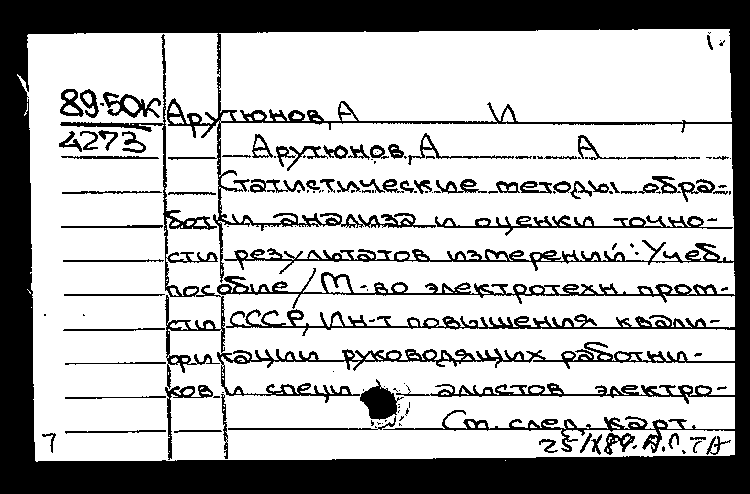 1.
89-50К Арутюнов, А И ,
4273 Арутюнов, А А
Статистические методы обра-
ботки, анализа и оценки точно-
сти результатов измерений: Учеб.
пособие / М-во электротехн. пром-
сти СССР, Ин-т повышения квали-
фикации руководящих работни-
ков и специ алистов электро-
См. след. карт.
7